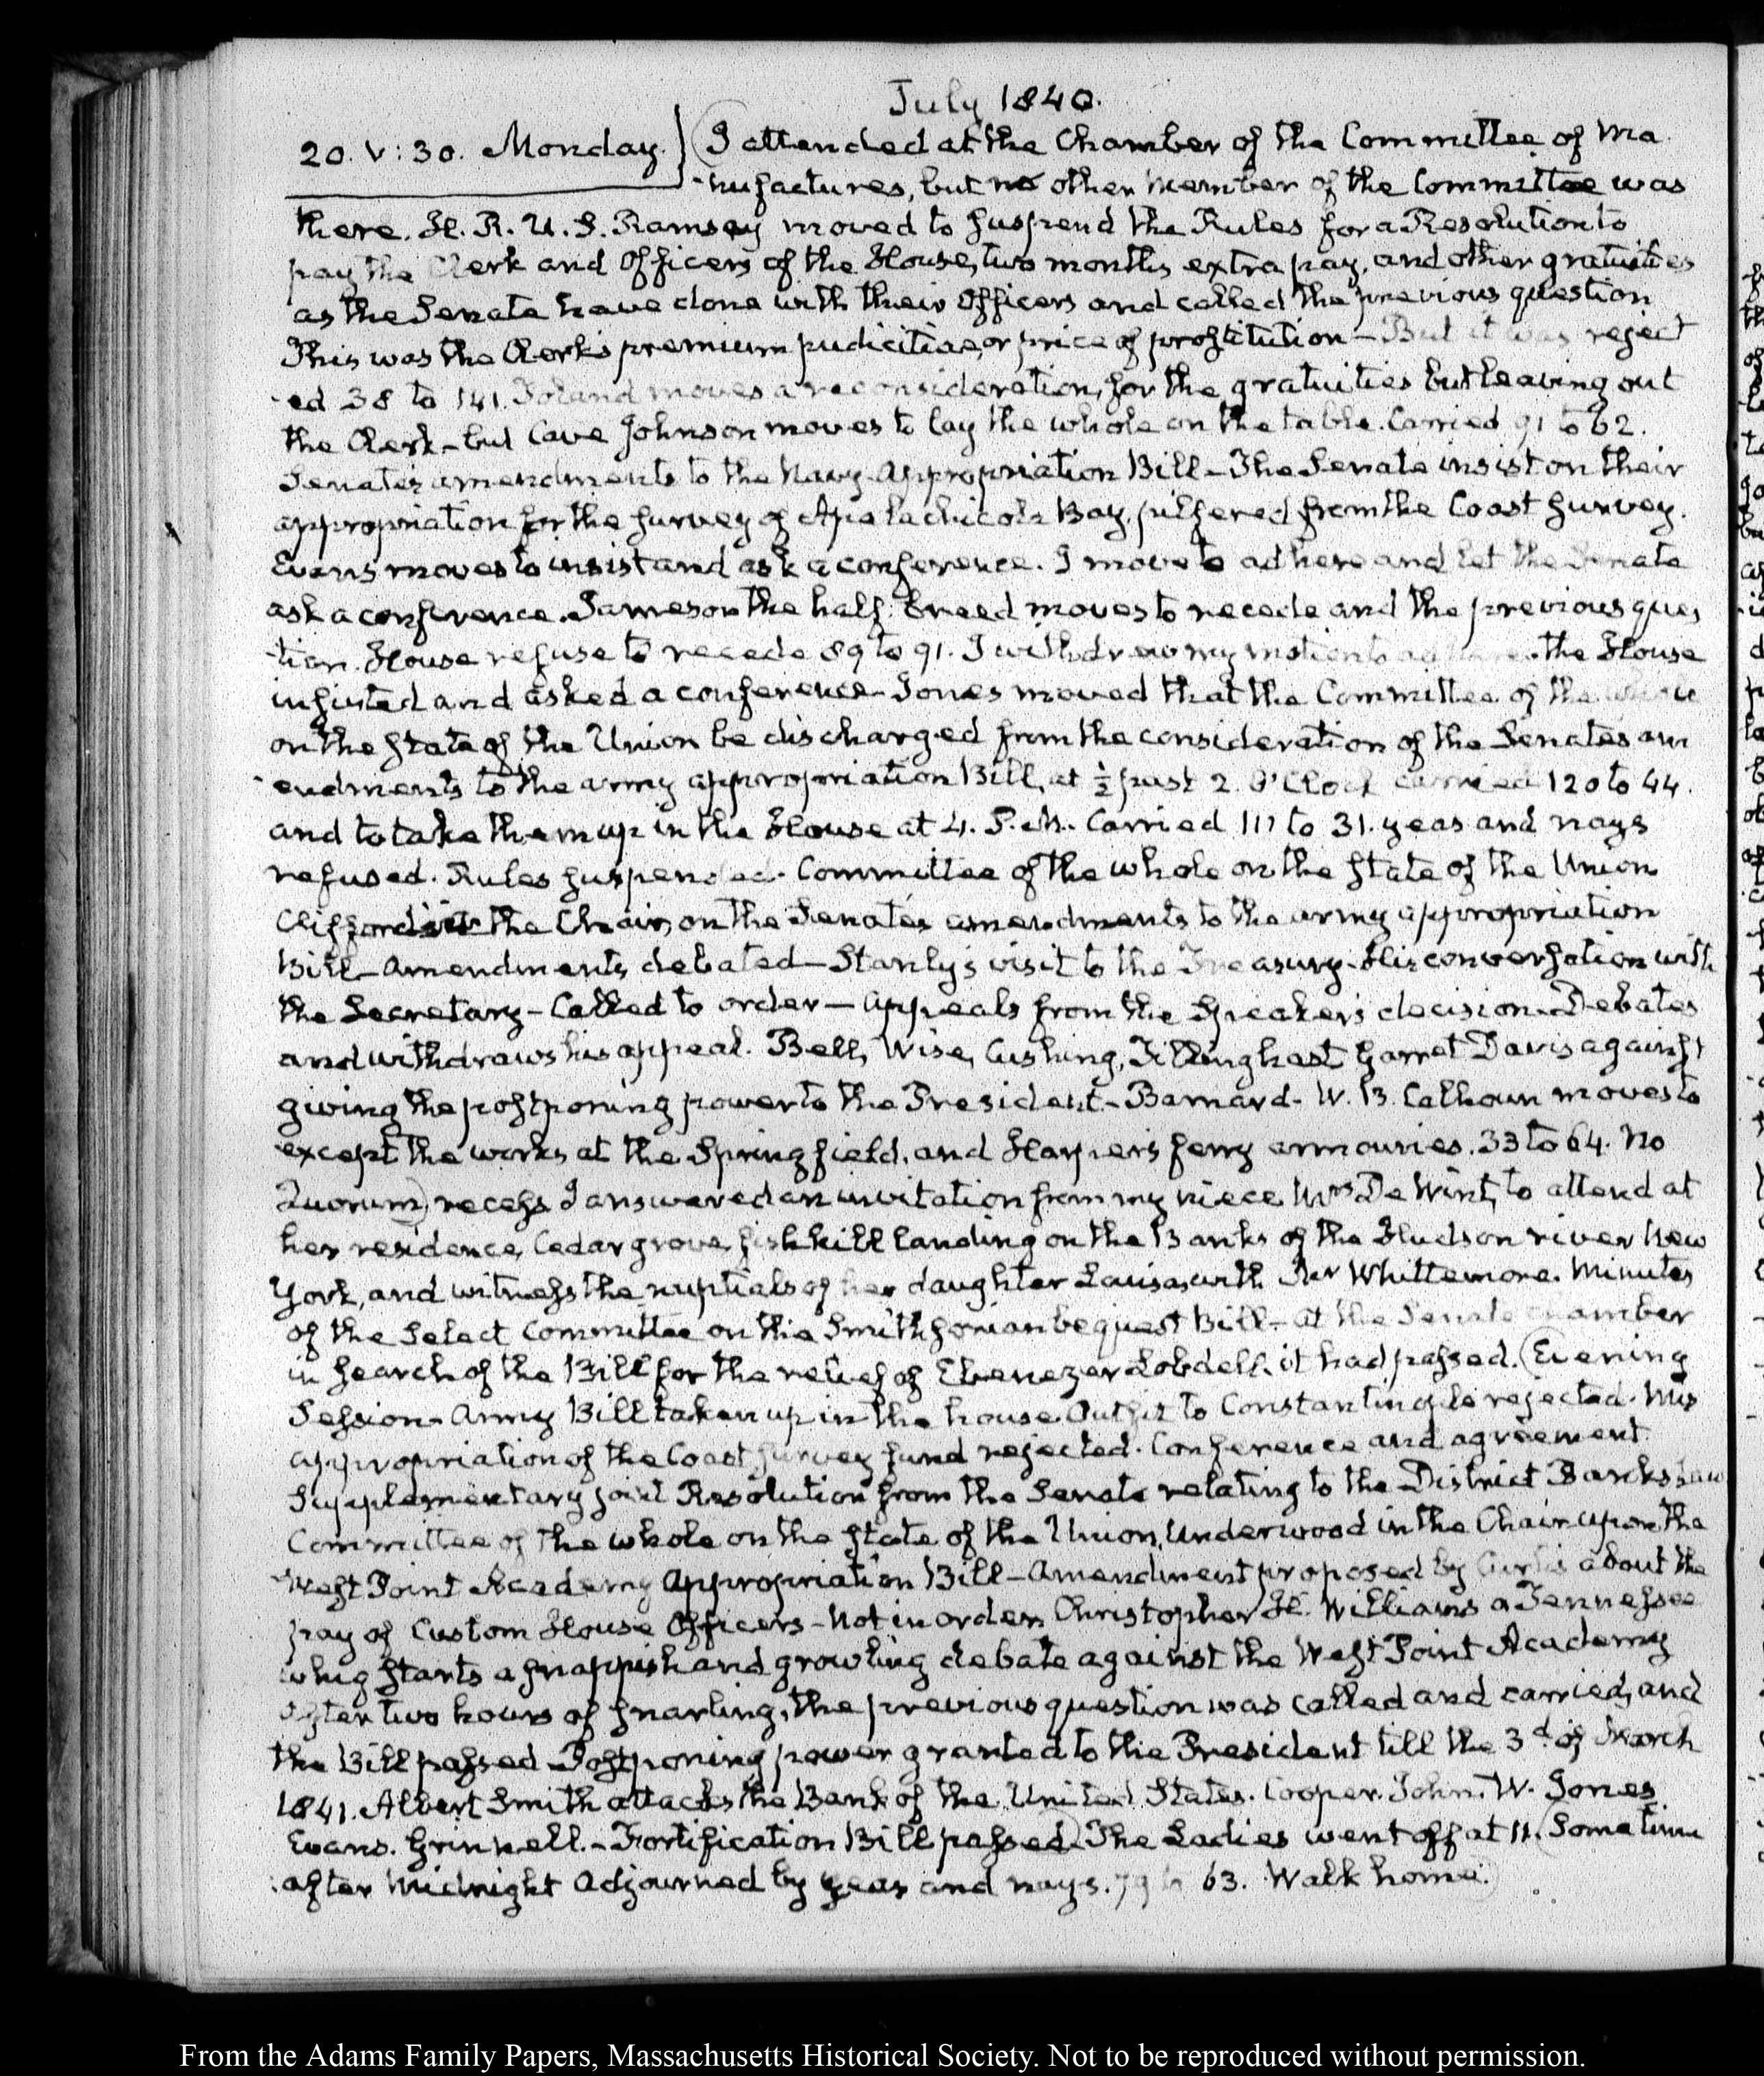 July 1840.
20. V: 30. Monday. I attended at the Chamber of the Committee of Ma
-nufactures, but no other member of the Committee was
there. H. R. U. S. Ramsey moved to suspend the Rules for a Resolution to
pay the Clerk and Officers of the House, two months extra pay, and other gratuities
as the Senate have done with their Officers and called the previous question
This was the Clerk's premium pudicitiae, or price of prostitution — But it was reject
-ed 38 to 141. Toland moves a reconsideration, for the gratuities but leaving out
the Clerk — but Cave Johnson moves to lay the whole on the table. Carried 91 to 62.
Senate's amendments to the Navy Appropriation Bill — The Senate insist on their
appropriation for the survey of Apalachicola Bay, pilfered from the Coast survey.
Evans moves to insist and ask a conference. I move to adhere and let the Senate
ask a conference. Jameson the half-breed moves to recede and the previous ques
-tion. House refuse to recede 89 to 91. I withdrew my motion to adhere. the House
insisted and asked a conference — Jones moved that the Committee of the whole
on the state of the Union be discharged from the consideration of the Senates am
-endments to the army appropriation Bill, at ½ past 2. O'Clock carried 120 to 44.
and to take them up in the House at 4. P.M. Carried 111 to 31. yeas and nays
refused. Rules suspended. Committee of the whole on the state of the Union
Clifford in the Chair, on the Senate's amendments to the army appropriation
Bill — Amendments debated — Stanly's visit to the Treasury. His conversation with
the Secretary — Called to order — Appeals from the Speaker's decision — Debates
and withdraws his appeal. Bell, Wise, Cushing, Tillinghast Garret Davis against
giving the postponing power to the President — Barnard — W. B. Calhoun moves to
except the works at the Springfield, and Harper's ferry armouries. 33 to 64. No
Quorum) recess I answered an invitation from my niece Mrs De Wint, to attend at
her residence, Cedar grove, fishkill landing on the Banks of the Hudson river New
York, and witness the nuptials of her daughter Louisa, with Mr Whittemore. Minutes
of the Select Committee on the Smithsonian bequest Bill — at the Senate chamber
in search of the Bill for the relief of Ebenezer Lobdell. it had passed. (Evening
Session — Army Bill taken up in the house. Outfit to Constantinople rejected. Mis
appropriation of the Coast survey fund rejected. Conference and agreement.
Supplementary joint Resolution from the Senate relating to the District Banks law
Committee of the whole on the state of the Union, Underwood in the Chair upon the
West Point Academy Appropriation Bill — Amendment proposed by Curtis about the
pay of Custom House Officers — Not in order. Christopher H. Williams a Tennessee
whig starts a snappish and growling debate against the West Point Academy
after two hours of snarling, the previous question was called and carried, and
the Bill passed — Postponing power granted to the President till the 3d. of March
1841. Albert Smith attacks the Bank of the United States. Cooper. John. W. Jones
Evans. Grinnell. — Fortification Bill passed) The Ladies went off at 11. (Some time
after Midnight Adjourned by yeas and nays. 79 to 63. Walk home.)
From the Adams Family Papers, Massachusetts Historical Society. Not to be reproduced without permission.